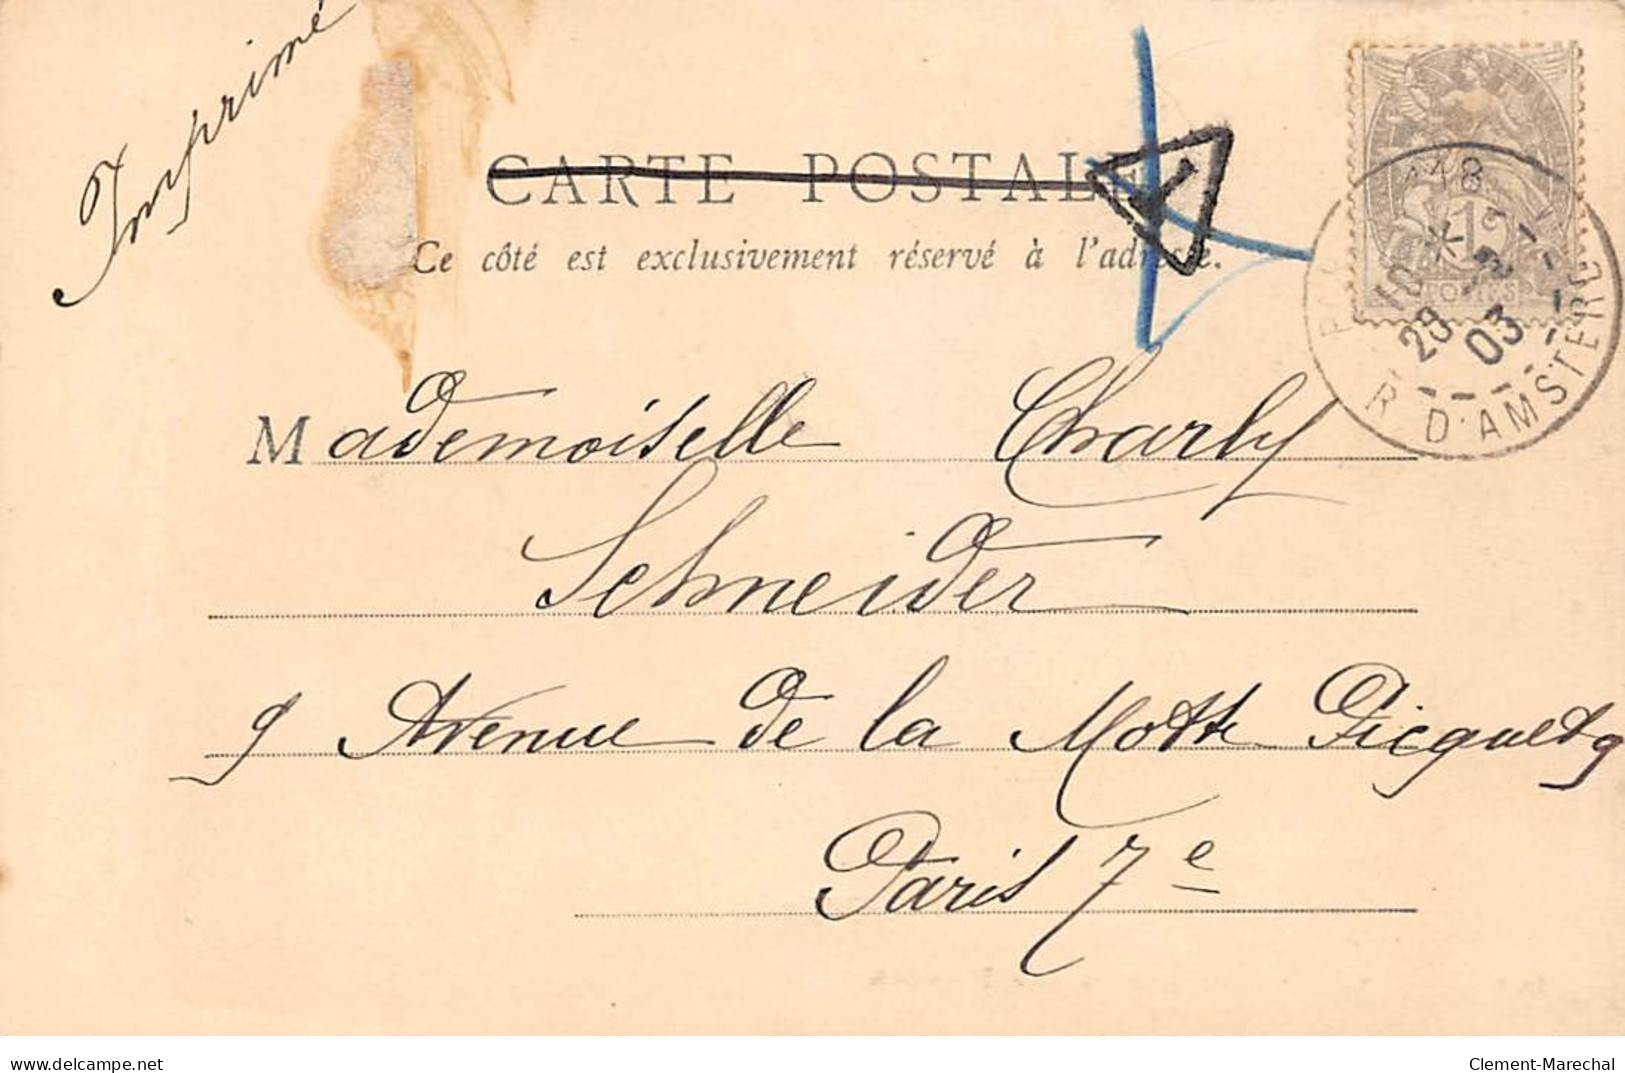 Imprimé
CARTE POSTALE
Ce côté est exclusivement réservé à l'adresse.
T
118
R. D'AMSTERD
29 - 3
03
1c
POSTES
Mademoiselle Charly
Schneider
9 Avenue de la Motte Picquet 9
Paris 7e
www.delcampe.net
Clement-Marechal